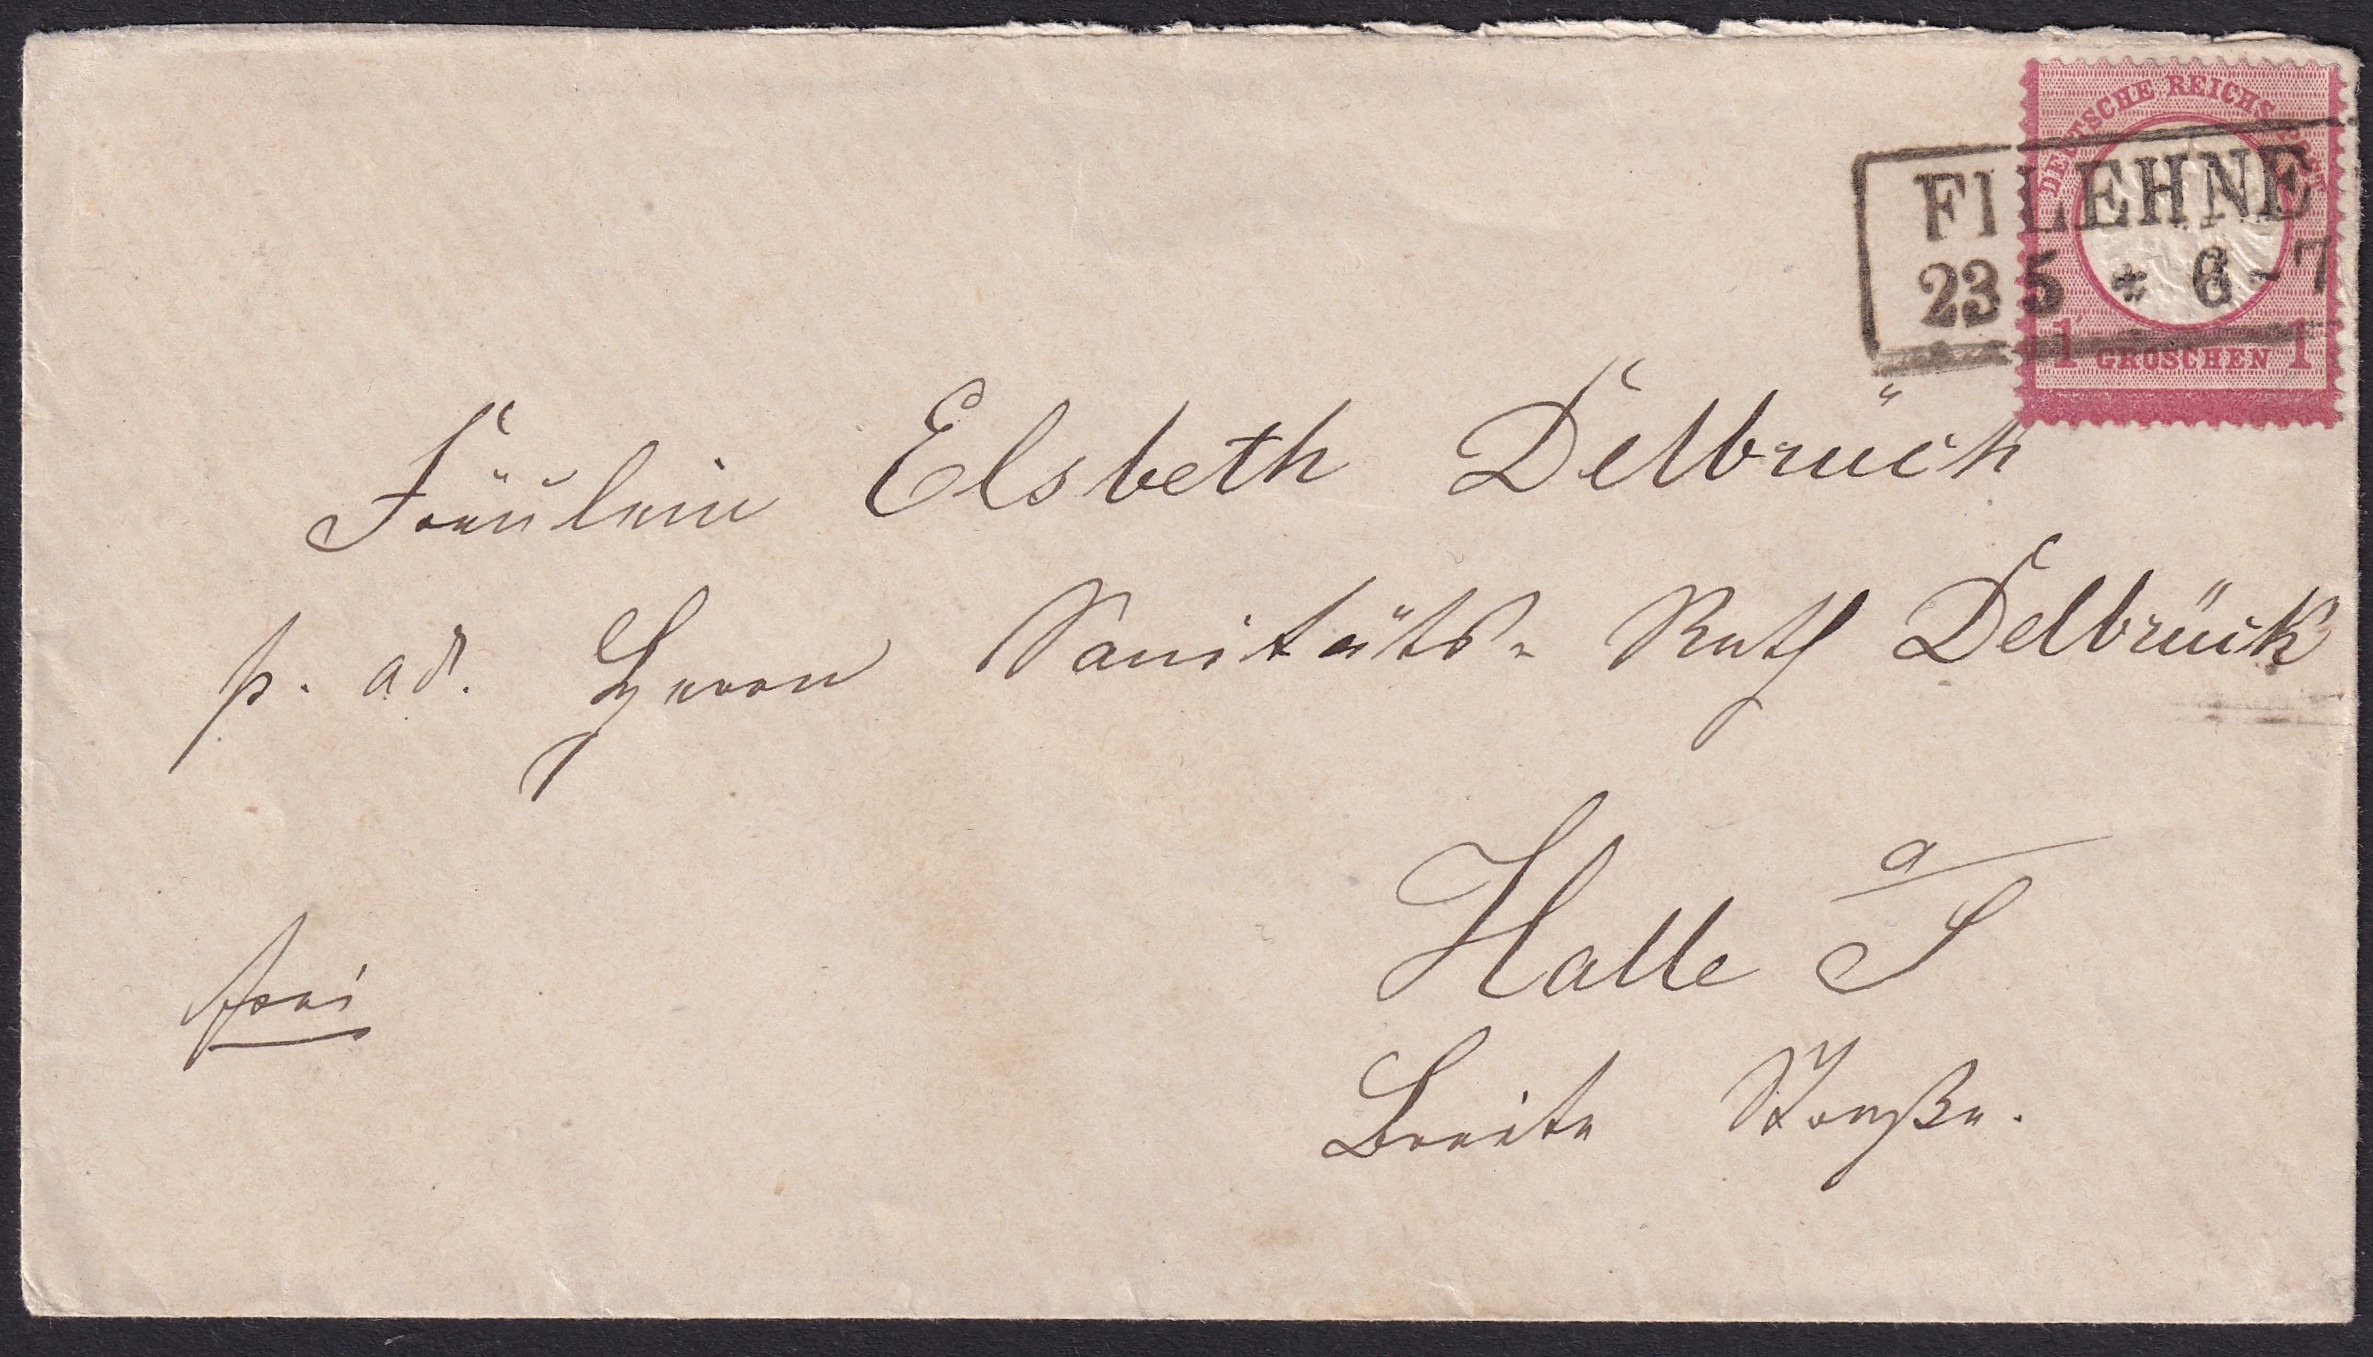 DEUTSCHE REICHS-POST
1 GROSCHEN 1
FILEHNE
23 5 * 6-7
Fräulein Elsbeth Delbrück
p. ad. Herrn Sanitäts- Rath Delbrück
Halle a/S
frei
Breite Straße.